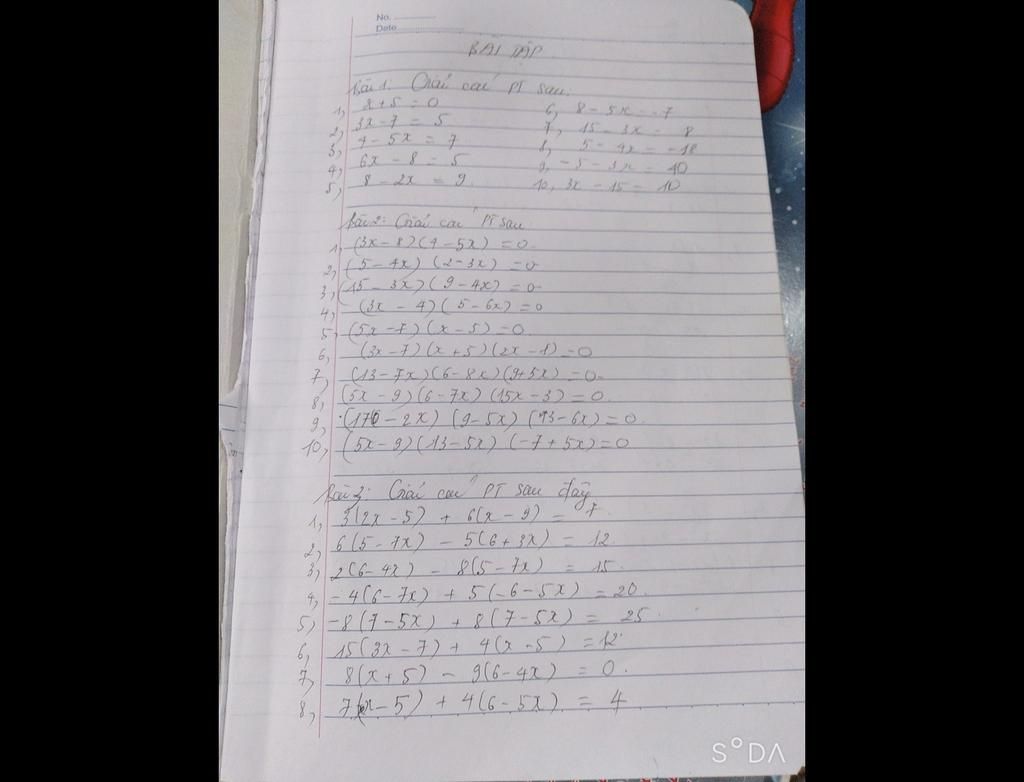 No.
Date
BÀI TẬP
Bài 1: Giải các PT sau.
1, x+5 = 0
2, 3x-7 = 5
3, 4-5x = 7
4, 6x-8 = 5
5, 8-2x = 9
6, 8-5x = -7
7, 15-3x = 8
8, 5-4x = -18
9, -5-3x = 10
10, 3x-15 = 10
Bài 2: Giải các PT sau.
1, (3x-8)(4-5x) = 0
2, (5-4x)(2-3x) = 0
3, (15-3x)(9-4x) = 0
4, (3x-4)(5-6x) = 0
5, (5x-7)(x-5) = 0
6, (3x-7)(x+5)(2x-1) = 0
7, (13-7x)(6-8x)(9+5x) = 0
8, (5x-9)(6-7x)(15x-3) = 0
9, (170-2x)(9-5x)(13-6x) = 0
10, (5x-9)(13-5x)(-7+5x) = 0
Bài 3: Giải các PT sau đây
1, 3(2x-5) + 6(x-9) = 7
2, 6(5-7x) - 5(6+3x) = 12
3, 2(6-4x) - 8(5-7x) = 15
4, -4(6-7x) + 5(-6-5x) = 20
5, -8(7-5x) + 8(7-5x) = 25
6, 15(3x-7) + 4(x-5) = 12
7, 8(x+5) - 9(6-4x) = 0
8, 7(x-5) + 4(6-5x) = 4
SODA